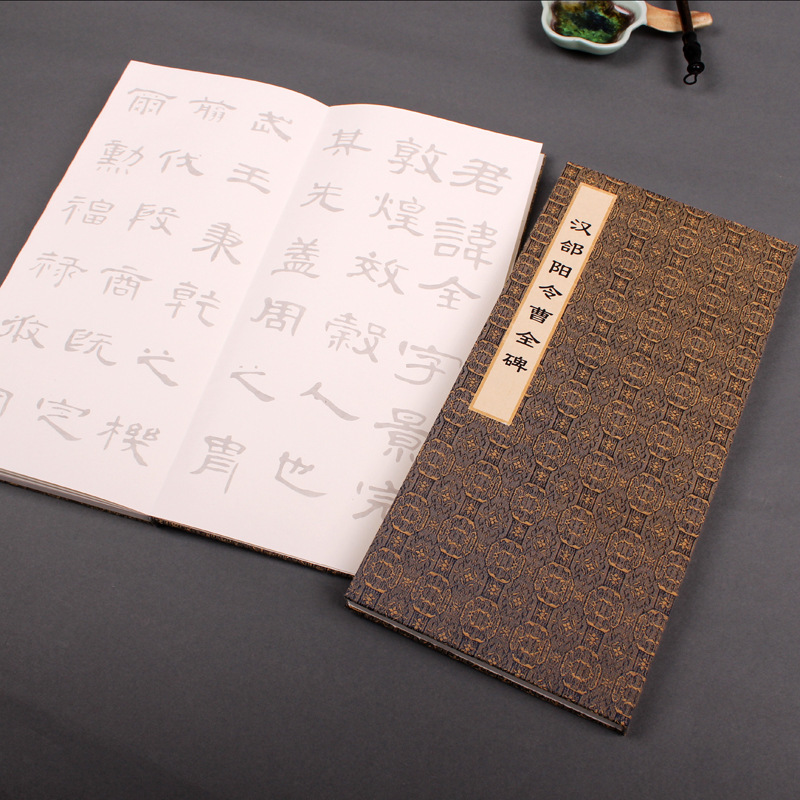 君諱全字景完
敦煌效穀人也
其先蓋周之胄
武王秉乾之機
翦伐殷商既定
爾勳福祿攸同
汉郃阳令曹全碑